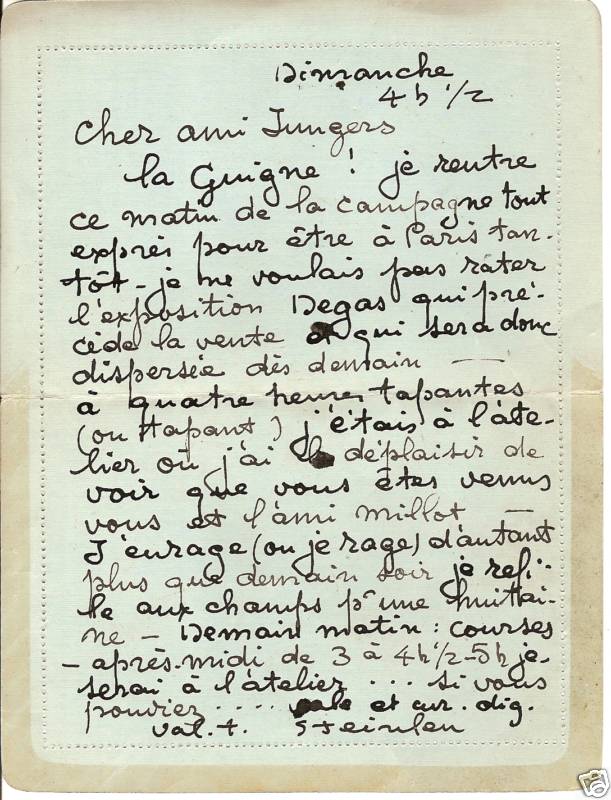 Dimanche
4h 1/2
Cher ami Jungers
la Guigne ! je rentre
ce matin de la campagne tout
exprès pour être à Paris tan-
tôt - je ne voulais pas rater
l'exposition Degas qui pré-
cède la vente et qui sera donc
dispersée dès demain —
à quatre heures tapantes
(ou tapant) j'étais à l'ate-
lier où j'ai le déplaisir de
voir que vous êtes venus
vous et l'ami Millot —
J'enrage (ou je rage) d'autant
plus que demain soir je refi-
le aux champs pr une huittai-
ne - Demain matin : courses
- après-midi de 3 à 4h 1/2 - 5h je
serai à l'atelier ... si vous
pouviez .... vale et cur. dig.
val. t. Steinlen